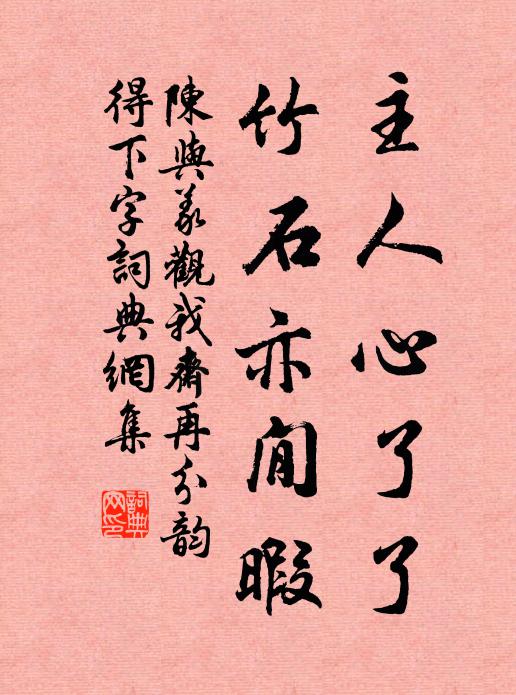 主人心了了
竹石亦閒暇
陳與義觀我齋再分韵
得下字詞典網集
詞典网印